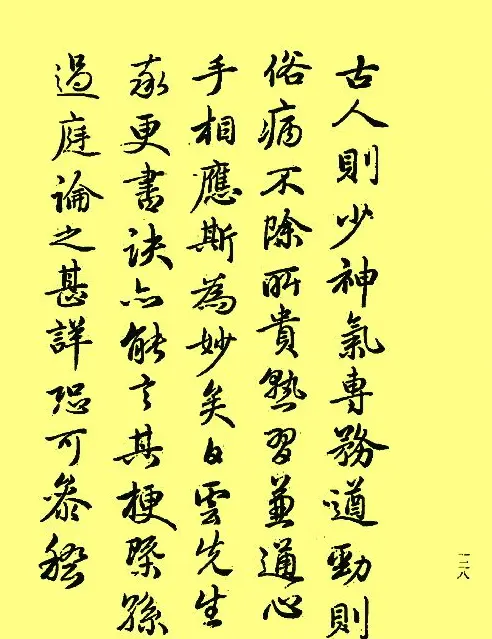 古人則少神氣專務遒勁則
俗病不除所貴熟習兼通心
手相應斯為妙矣白雲先生
率更書訣亦能言其梗槩孫
過庭論之甚詳可參稽
一二八